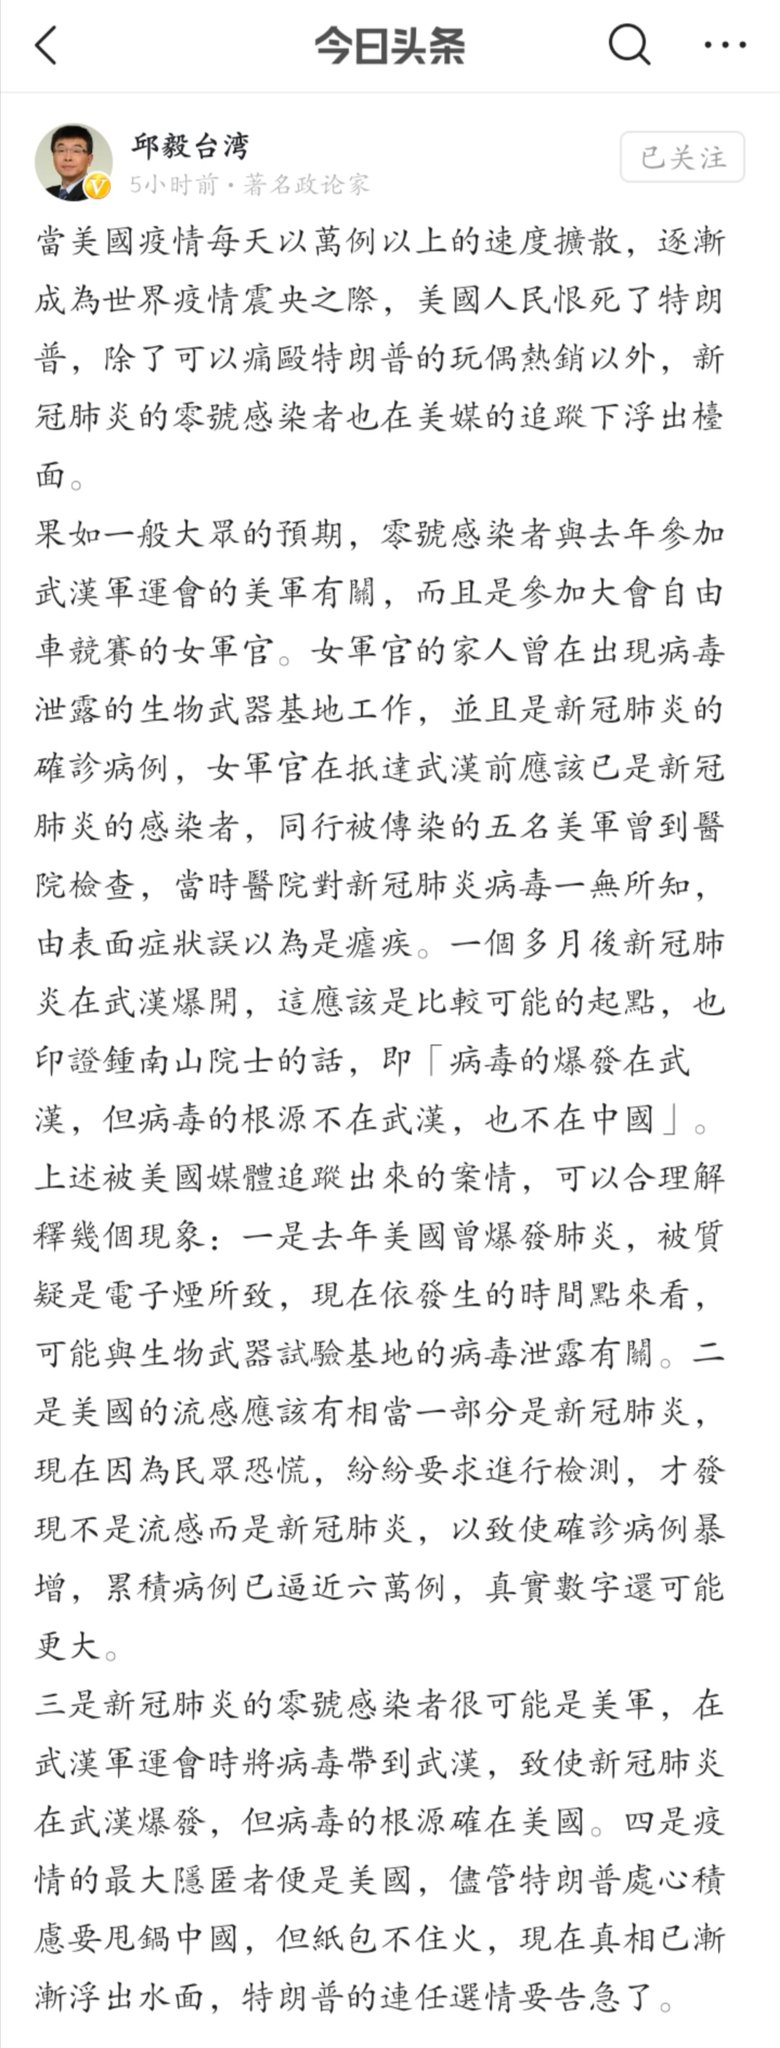 今日头条
邱毅台湾
已关注
5小时前·著名政论家
當美國疫情每天以萬例以上的速度擴散，逐漸
成為世界疫情震央之際，美國人民恨死了特朗
普，除了可以痛毆特朗普的玩偶熱銷以外，新
冠肺炎的零號感染者也在美媒的追蹤下浮出檯
面。
果如一般大眾的預期，零號感染者與去年參加
武漢軍運會的美軍有關，而且是參加大會自由
車競賽的女軍官。女軍官的家人曾在出現病毒
泄露的生物武器基地工作，並且是新冠肺炎的
確診病例，女軍官在抵達武漢前應該已是新冠
肺炎的感染者，同行被傳染的五名美軍曾到醫
院檢查，當時醫院對新冠肺炎病毒一無所知，
由表面症狀誤以為是瘧疾。一個多月後新冠肺
炎在武漢爆開，這應該是比較可能的起點，也
印證鍾南山院士的話，即「病毒的爆發在武
漢，但病毒的根源不在武漢，也不在中國」。
上述被美國媒體追蹤出來的案情，可以合理解
釋幾個現象：一是去年美國曾爆發肺炎，被質
疑是電子煙所致，現在依發生的時間點來看，
可能與生物武器試驗基地的病毒泄露有關。二
是美國的流感應該有相當一部分是新冠肺炎，
現在因為民眾恐慌，紛紛要求進行檢測，才發
現不是流感而是新冠肺炎，以致使確診病例暴
增，累積病例已逼近六萬例，真實數字還可能
更大。
三是新冠肺炎的零號感染者很可能是美軍，在
武漢軍運會時將病毒帶到武漢，致使新冠肺炎
在武漢爆發，但病毒的根源確在美國。四是疫
情的最大隱匿者便是美國，儘管特朗普處心積
慮要甩鍋中國，但紙包不住火，現在真相已漸
漸浮出水面，特朗普的連任選情要告急了。